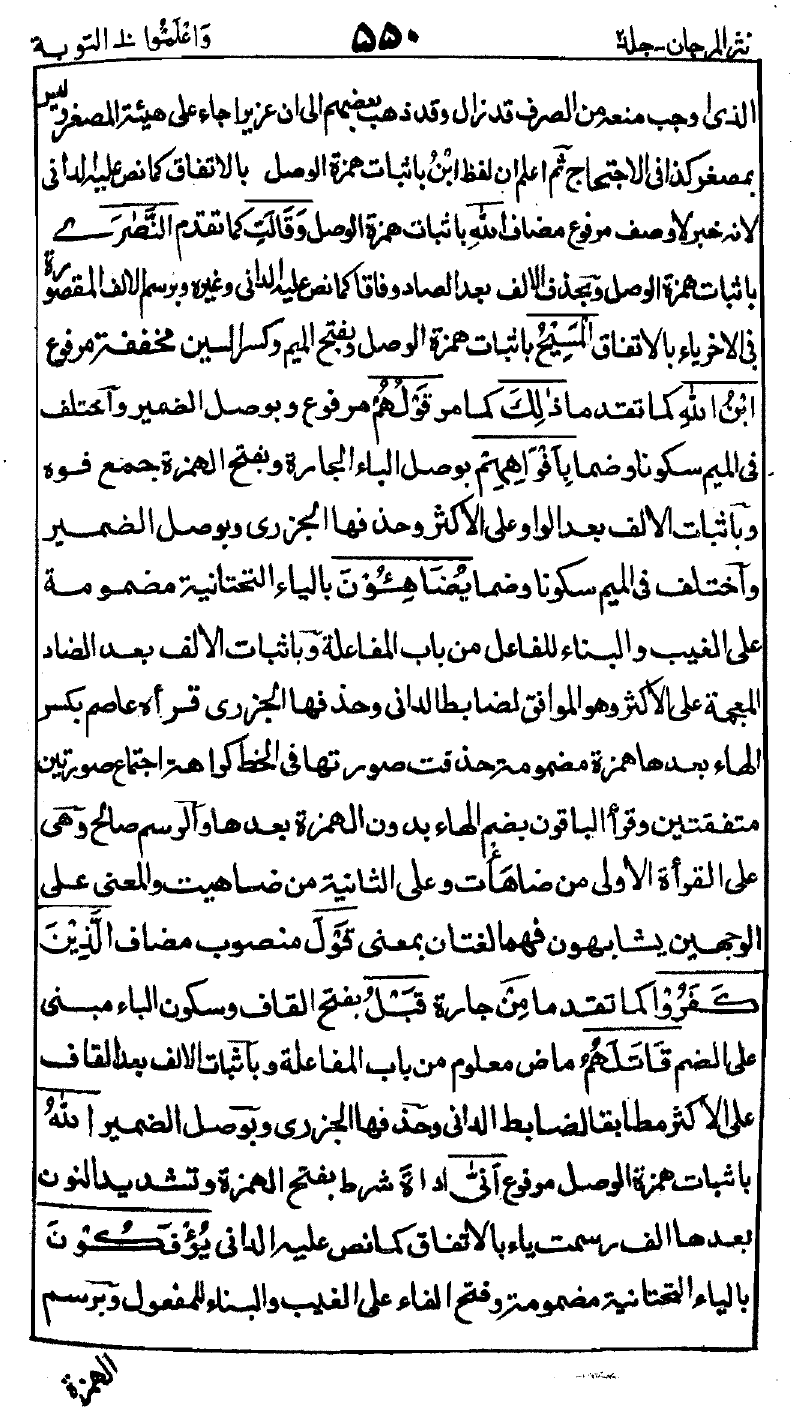 نثر المرجان - جلد٢ ٥٥٠ وَاعْلَمُوا ١٠ التوبة
الذى اوجب منعه من الصرف قد زال وقد ذهب بعضهم الى ان عزيرا جاء على هيئة المصغر وليس
بمصغر كذا فى الاحتجاج ثم اعلم ان لفظ ابْنُ باثبات همزة الوصل بالاتفاق كما نص عليه الدانى
لانه خبر لا وصف مرفوع مضاف اللهِ باثبات همزة الوصل وَقَالَتِ كما تقدم النَّصٰرَے
باثبات همزة الوصل وبحذف الالف بعد الصاد وفاقا كما نص عليه الدانى وغيره وبرسم الالف المقصورة
فى الاخر ياء بالاتفاق الْمَسِيْحُ باثبات همزة الوصل وبفتح الميم وكسر السين مخففة مرفوع
ابْنُ اللهِ كما تقدما ذٰلِكَ كما مر قَوْلُهُمْ مرفوع وبوصل الضمير واختلف
فى الميم سكونا وضما بِاَفْوَاهِهِمْ بوصل الباء الجارة وبفتح الهمزة جمع فوه
وباثبات الالف بعد الواو على الاكثر وحذفها الجزرى وبوصل الضمير
واختلف فى الميم سكونا وضما يُضَاهِئُوْنَ بالياء التحتانية مضمومة
على الغيب والبناء للفاعل من باب المفاعلة وباثبات الالف بعد الضاد
المعجمة على الاكثر وهو الموافق لضابط الدانى وحذفها الجزرى قرأه عاصم بكسر
الهاء بعدها همزة مضمومة حذفت صورتها فى الخط كراهة اجتماع صورتين
متفقتين وقرأ الباقون بضم الهاء بدون الهمزة بعدها والرسم صالح وهى
على القرأة الاولى من ضاهَأْت وعلى الثانية من ضاهيت والمعنى على
الوجهين يشابهون فهما لغتان بمعنى قَوْلَ منصوب مضاف الَّذِيْنَ
كَفَرُوْا كما تقدما مِنْ جارة قَبْلُ بفتح القاف وسكون الباء مبنى
على الضم قَاتَلَهُمُ ماض معلوم من باب المفاعلة وباثبات الالف بعد القاف
على الاكثر مطابقا لضابط الدانى وحذفها الجزرى وبوصل الضمير اللهُ
باثبات همزة الوصل مرفوع اَنّٰى اداة شرط بفتح الهمزة وتشديد النون
بعدها الف رسمت ياء بالاتفاق كما نص عليه الدانى يُؤْفَكُوْنَ
بالياء التحتانية مضمومة وفتح الفاء على الغيب والبناء للمفعول وبرسم
الهمزة